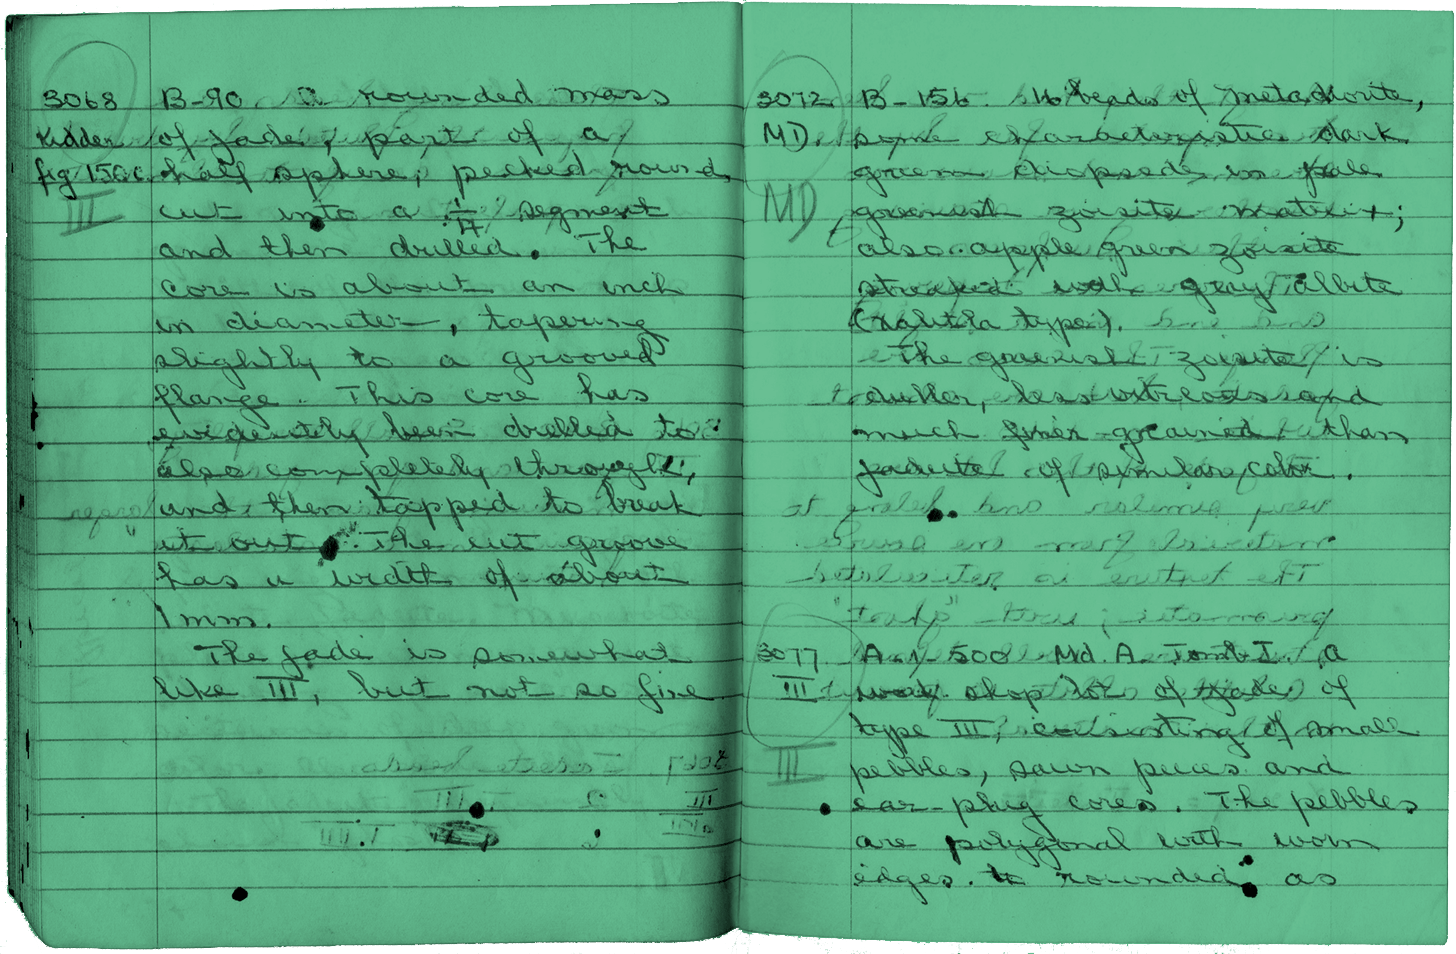 3068 B-90 a rounded mass
Kidder of jade, part of a
fig 150c half sphere, pecked round,
III cut into a 1/4 segment
and then drilled. The
core is about an inch
in diameter, tapering
slightly to a grooved
flange. This core has
evidently been drilled to
also completely through,
and then tapped to break
it out. The cut groove
has a width of about
1 mm.
The jade is somewhat
like III, but not so fine
3072 B-15b. 16 beads of metadiorite,
MD. some characteristic dark
green diopside in pale
MD greenish zoisite matrix;
also apple green zoisite
streaked with gray albite
type).
The greenish zoisite is
duller, less vitreous and
much finer grained than
jadeite of similar color.
3077 A-1-500 Md. A. Tomb I. a
III work shop lot of jade of
type III, consisting of small
III pebbles, sawn pieces and
ear-plug cores. The pebbles
are polygonal with worn
edges to rounded, as